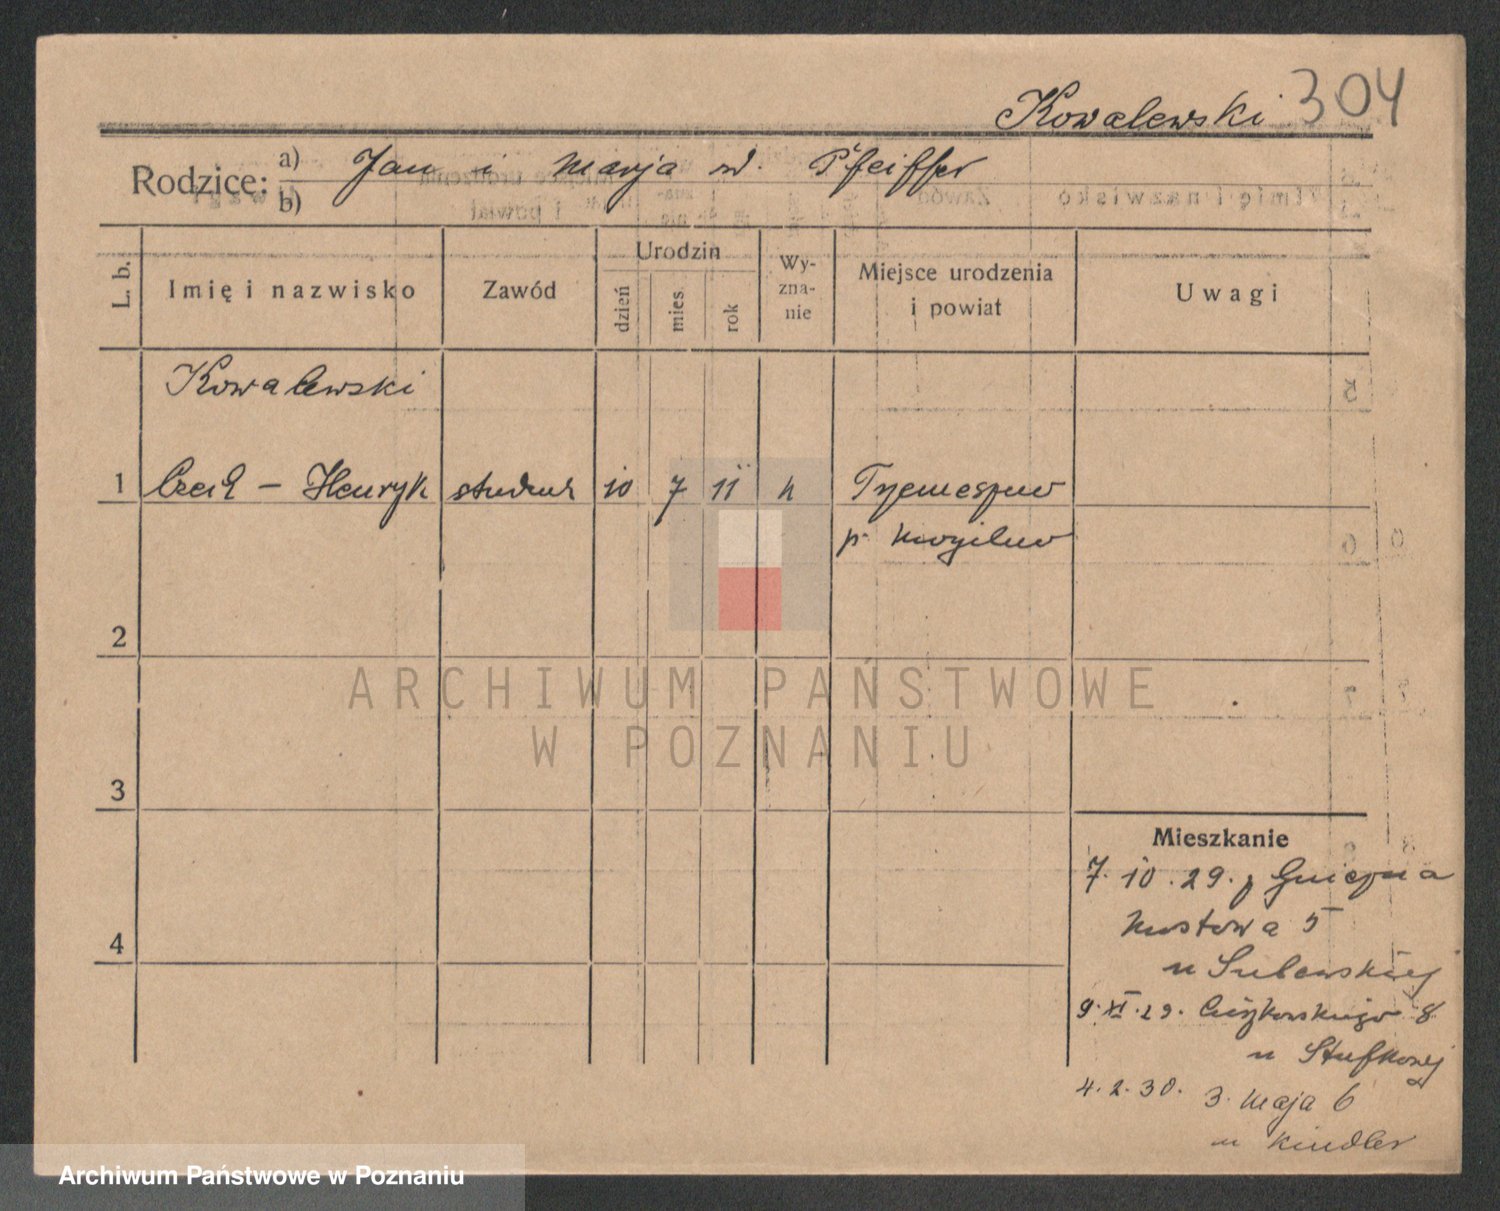 Kowalewski 304
Rodzice: a) Jan i Marja ur. Pfeiffer
b)
L. b.
Imię i nazwisko
Zawód
Urodzin
dzień
mies.
rok
Wy-
zna-
nie
Miejsce urodzenia
i powiat
Uwagi
Kowalewski
1 – Henryk student 10 7 11 k Trzemeszno
p. Mogilno
2
ARCHIWUM PAŃSTWOWE
W POZNANIU
3
Mieszkanie
7.10.29. z Gniezna
4
Mostowa 5
u
9.XI.29. 8
u
4.2.30. 3. Maja 6
u Kindler
Archiwum Państwowe w Poznaniu